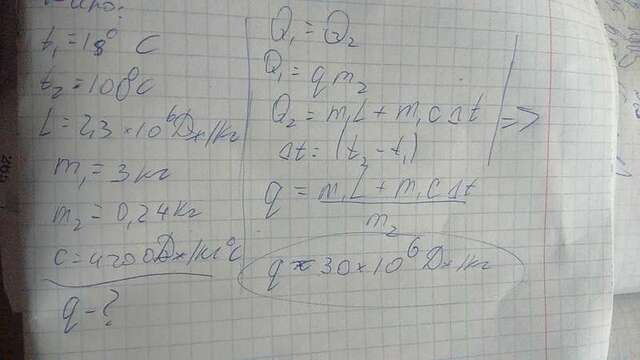 t₁ = 18° C
t₂ = 100°C
L = 2,3 × 10⁶ Дж/кг
m₁ = 3 кг
m₂ = 0,24 кг
c = 4200 Дж/кг°C
q - ?
Q₁ = Q₂
Q₁ = q m₂
Q₂ = m₁L + m₁cΔt
Δt = (t₂ - t₁)
=>
q = m₁L + m₁cΔt
m₂
q ≈ 30 × 10⁶ Дж/кг